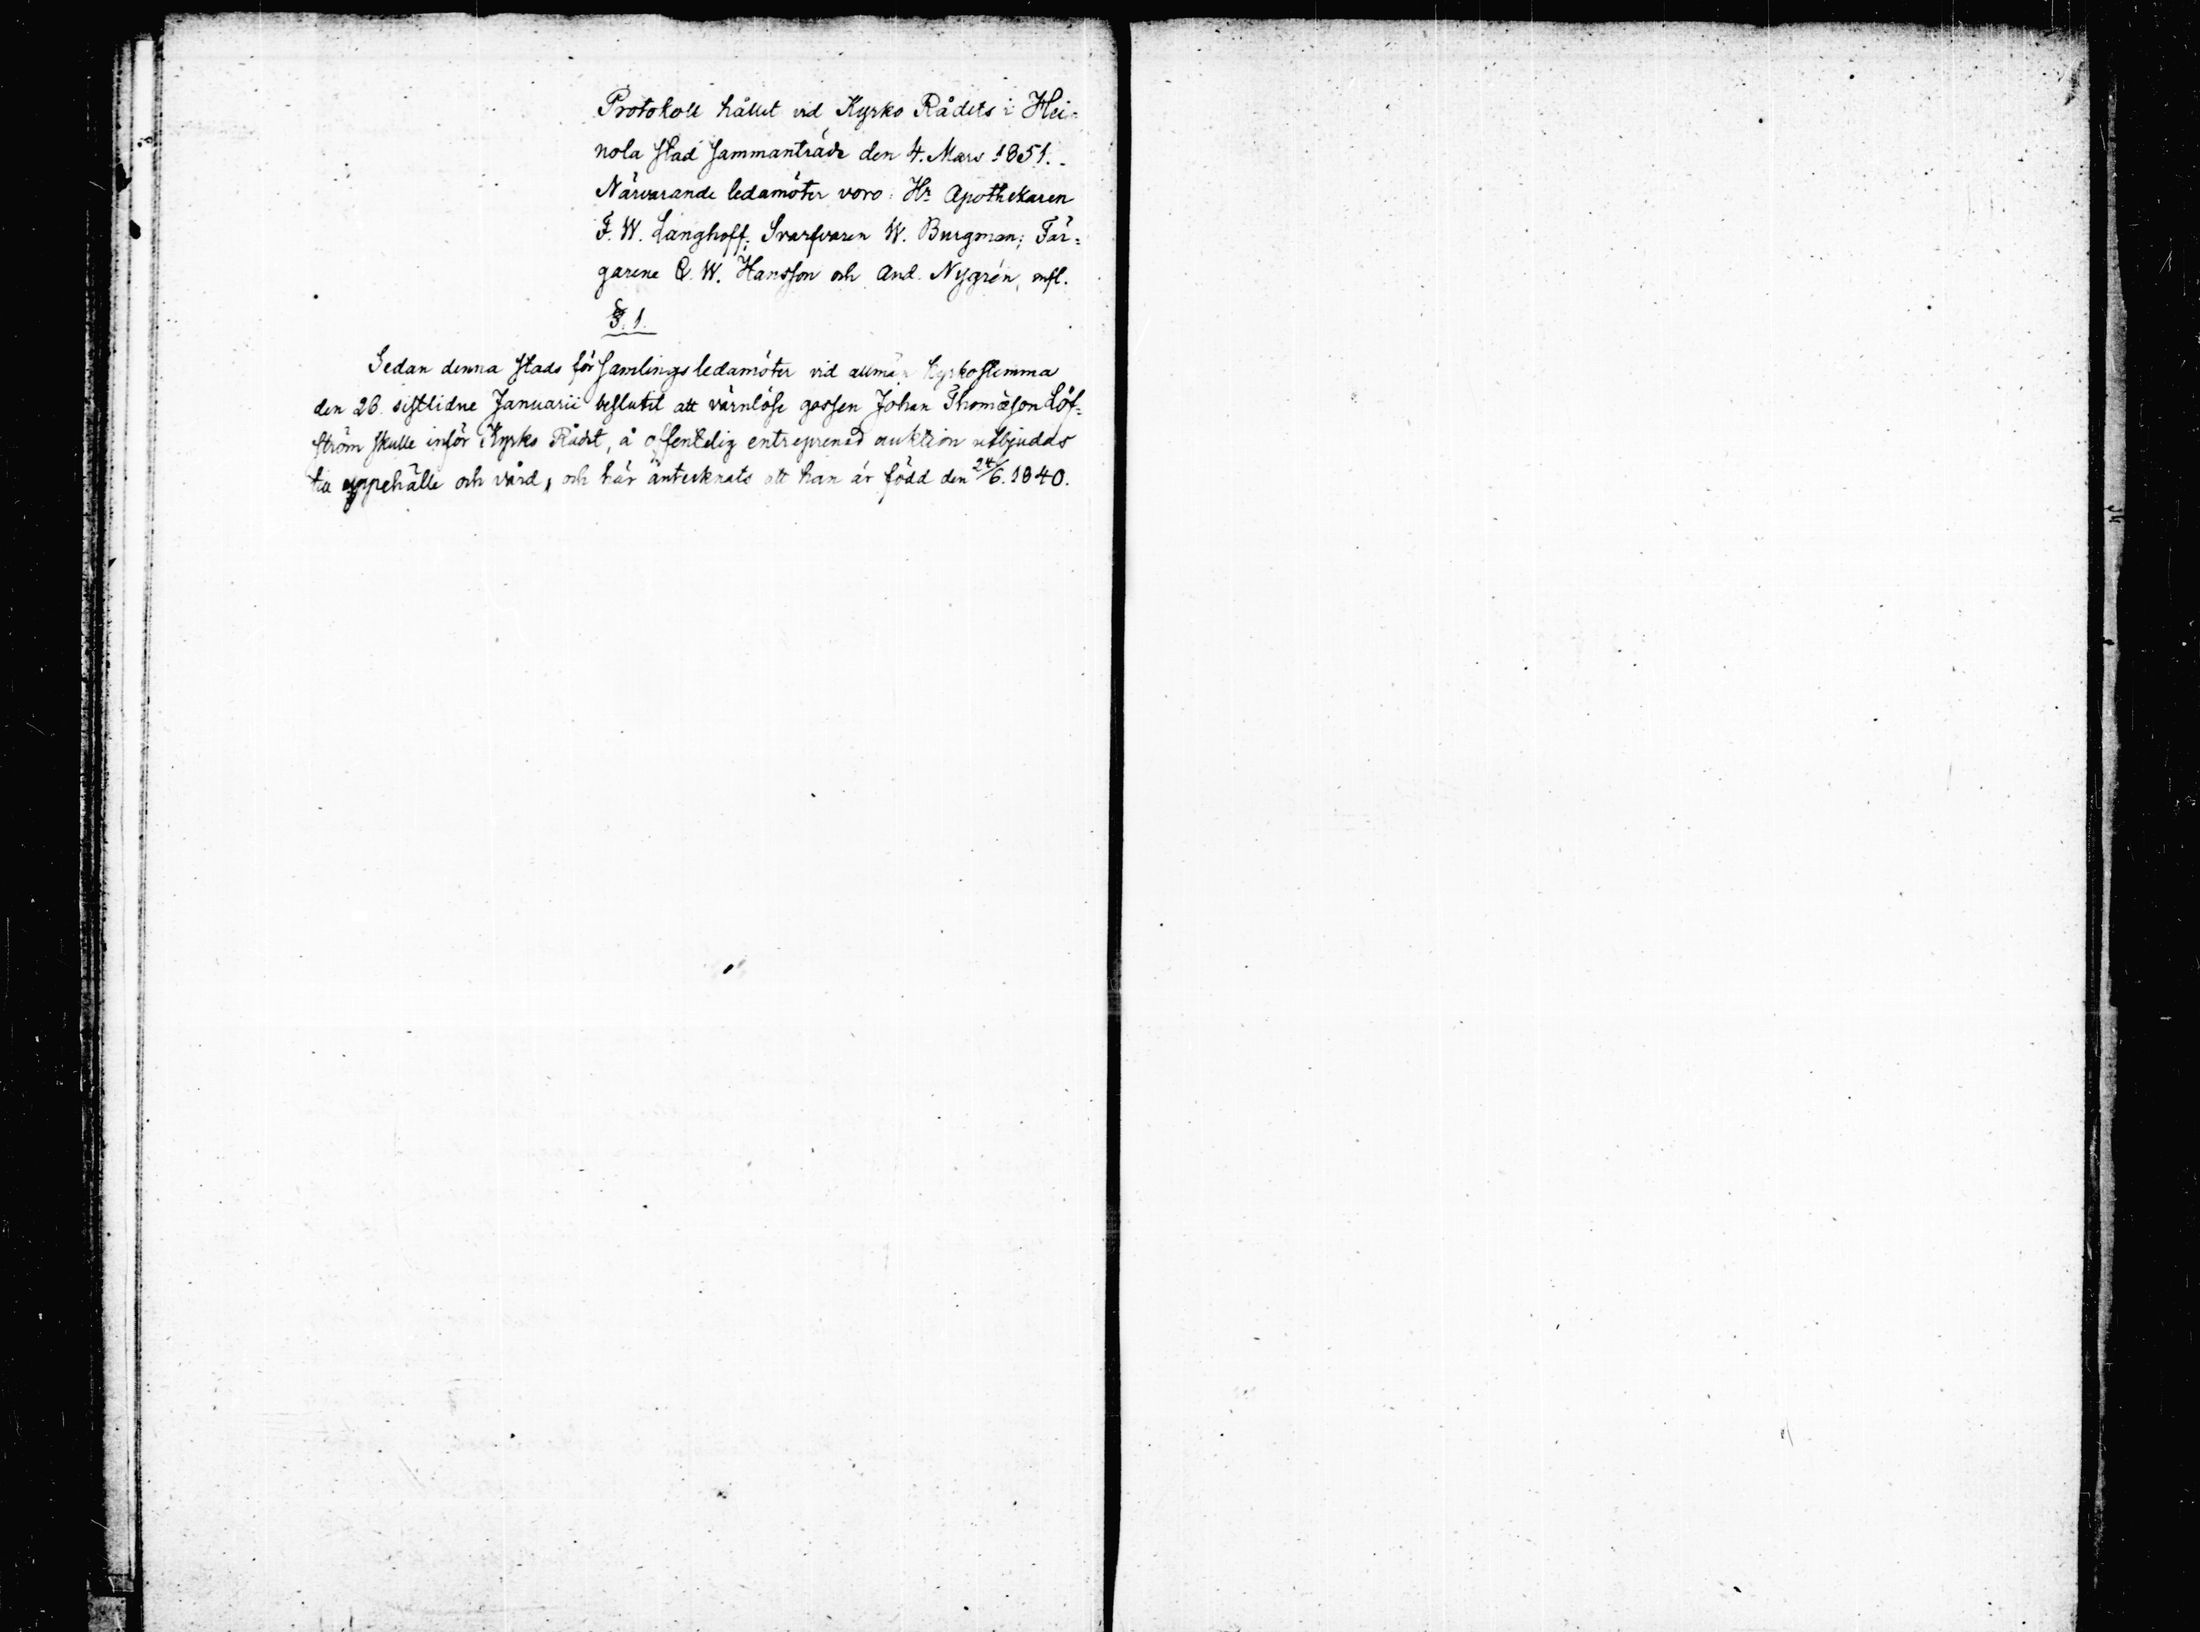 Protokoll hållet vid Kyrko Rådets i Hei=
nola stad sammanträde den 4. Mars 1851.
Närvarande ledamöter voro: Hr Apothekaren
F. W. Langhoff; Svarfvaren W. Burgman; Fär=
garene Q. W. Hansson och And. Nygrén, mfl.
§. 1.
Sedan denna stads församlings ledamöter vid allmän kyrkostemma
den 26 sistlidne Januarii beslutit att värnlöse gossen Johan Thomæson Löf=
ström skulle inför Kyrko Rådet, å offentelig entreprenad auktion utbjudas
till uppehälle och vård, och här antecknats att han är född den 24/6. 1840.